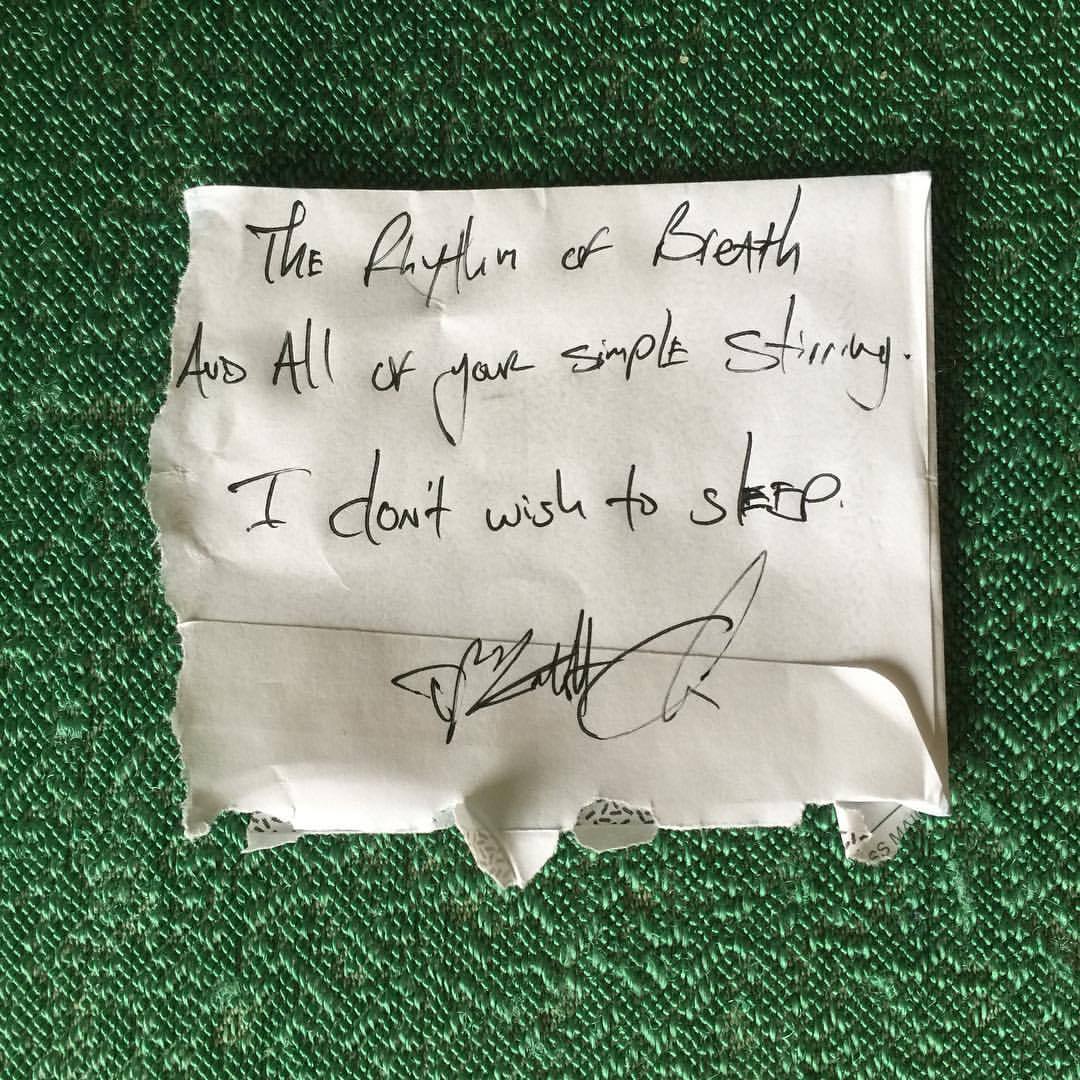 The Rhythm of Breath
And All of your simple Stirring.
I don't wish to sleep.